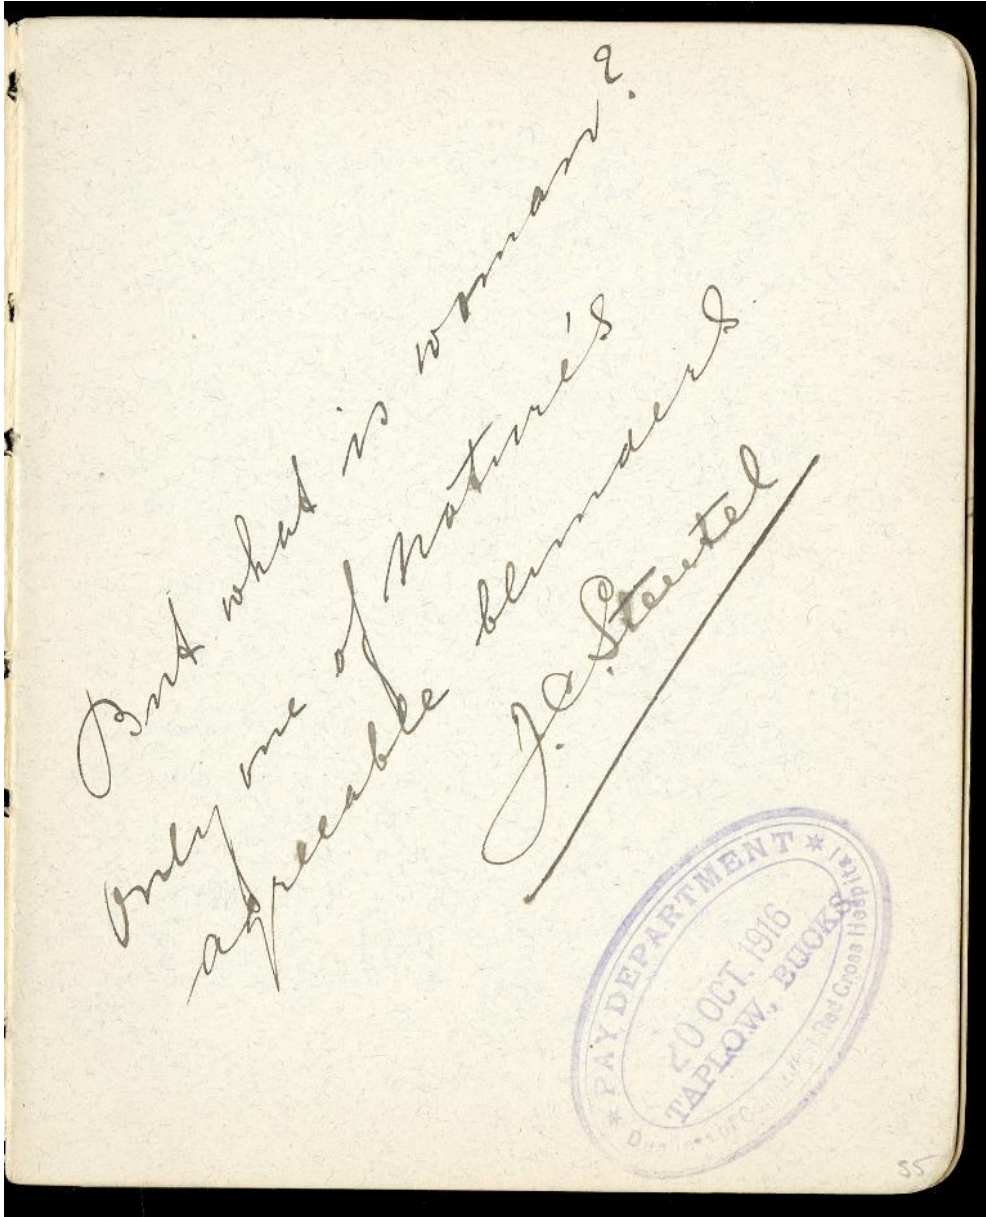 But what is woman?
only one of Nature's
agreeable blunders
J.C. Steutel
★ PAY DEPARTMENT ★
20 OCT. 1916
TAPLOW, BUCKS
Red Cross Hospital
55